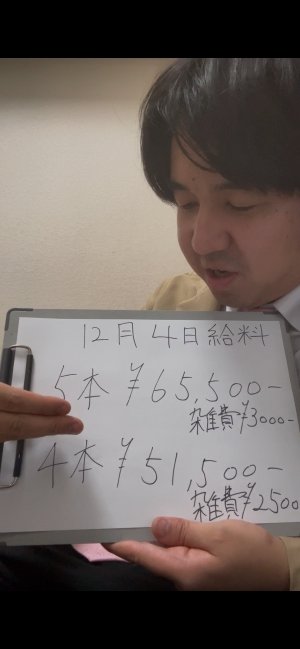 12月4日給料
5本 ¥65,500-
雑費¥3000-
4本 ¥51,500-
雑費¥2500